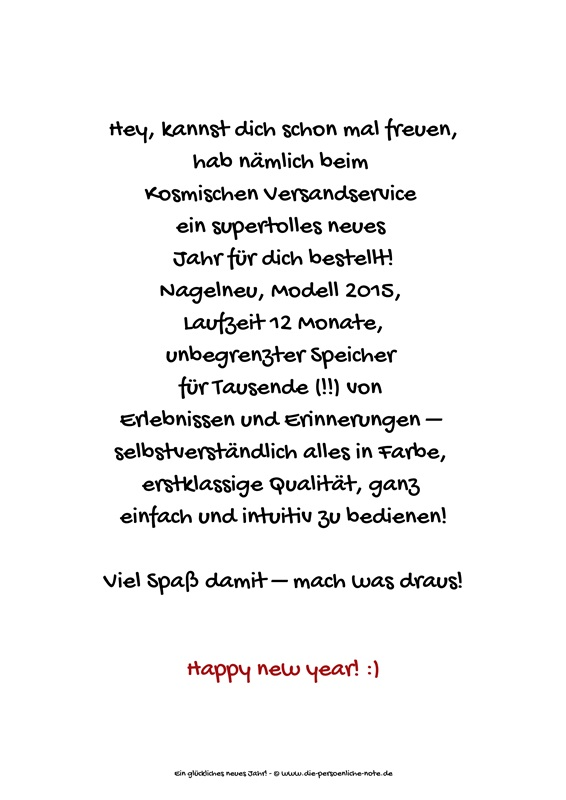 Hey, kannst dich schon mal freuen,
hab nämlich beim
Kosmischen Versandservice
ein supertolles neues
Jahr für dich bestellt!
Nagelneu, Modell 2015,
Laufzeit 12 Monate,
unbegrenzter Speicher
für Tausende (!!) von
Erlebnissen und Erinnerungen –
selbstverständlich alles in Farbe,
erstklassige Qualität, ganz
einfach und intuitiv zu bedienen!
Viel Spaß damit – mach was draus!
Happy new year! :)
Ein glückliches neues Jahr! - © www.die-persoenliche-note.de